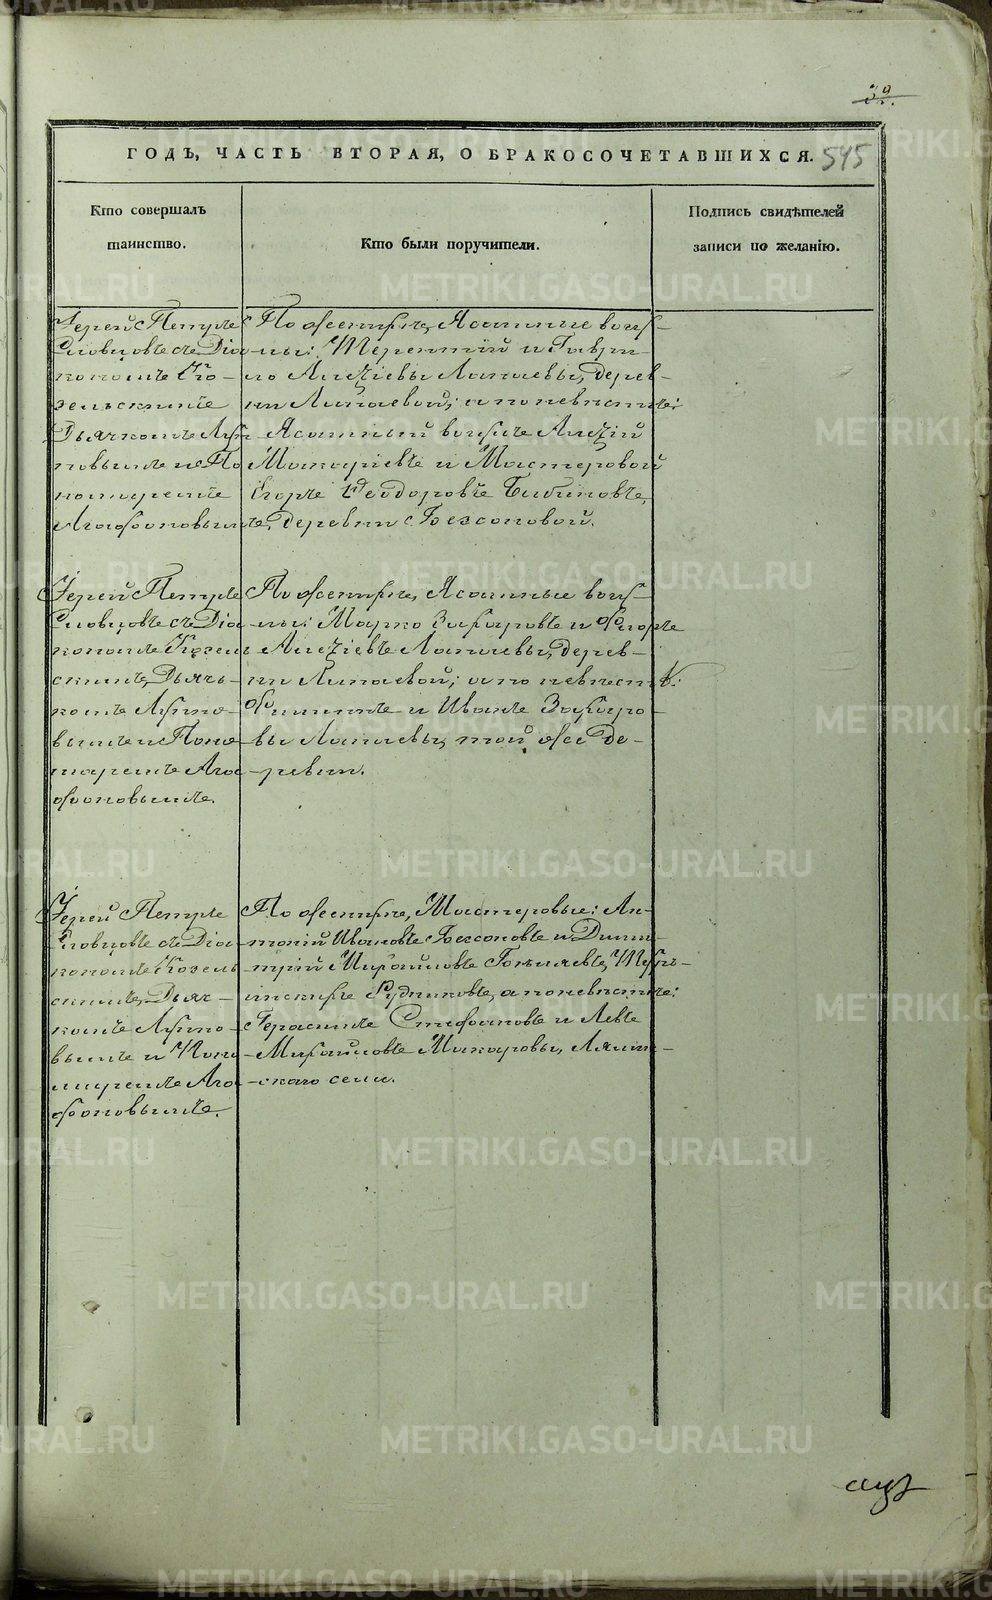 39.
ГОДЪ, ЧАСТЬ ВТОРАЯ, О БРАКОСОЧЕТАВШИХСЯ.
545
Кто совершалъ
таинство.
Кто были поручители.
Подпись свидѣтелей
записи по желанію.
Іерей Петръ
Словцовъ съ Діа-
кономъ Ко-
зельскимъ
Дьячкомъ
повымъ и По
номаремъ
Агафоновымъ
По женихѣ, Ясашные вогу-
лы: Терентій и Гаври-
ло Алексіевы Лапаевы, дерев-
ни Лапаевой; а по невѣстѣ:
Ясашный вогулъ Алексій
Макаріевъ и Мастеровой
Егоръ Ѳеодоровъ
деревни Безсоновой.
Іерей Петръ
Словцовъ съ Діа
кономъ Козель
скимъ, Дьяч-
комъ
вымъ и Поно
маремъ Ага
фоновымъ.
По женихѣ, Ясашные вогу-
лы: Марко Захаровъ и Флоръ
Алексіевъ Лапаевы, дерев-
ни Лапаевой; а по невѣстѣ:
Филиппъ и Иванъ Захаро-
вы Лапаевы, той же де-
ревни.
Іерей Петръ
Словцовъ съ Діа
кономъ Козель
скимъ, Дьяч-
комъ
вымъ и Поно
маремъ Ага
фоновымъ.
По женихѣ, Мастеровые: Ан-
тоній Ивановъ Безсоновъ и Дими-
трій Михайловъ
Рудниковъ, а по невѣстѣ:
Герасимъ Стефановъ и Левъ
Михайловъ Макаровы, Лялин-
скаго села.
METRIKI.GASO-URAL.RU